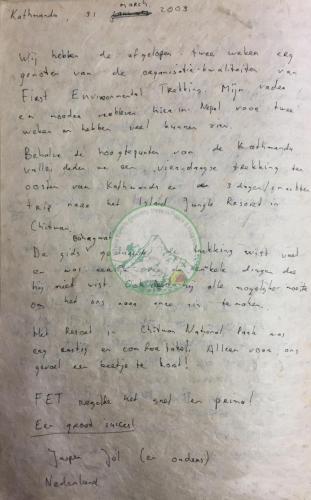 march
Kathmandu, 31 2003
Wij hebben de afgelopen twee weken erg
genoten van de organisatie-kwaliteiten van
First Environmental Trekking. Mijn vader
en moeder verbleven hier in Nepal voor twee
weken en hebben veel kunnen zien.
Behalve de hoogtepunten van de Kathmandu
vallei deden we een vierdaagse trekking ten
oosten van Kathmandu en 3 dagen/ nachten
trip naar het Island Jungle Resort in
Chitwan.
De gids de trekking wist veel
en was enkele dingen die
hij niet wist. alle mogelijke moeite
om het ons naar onze zin te maken.
Het Resort in Chitwan National Park was
erg rustig en comfortabel. Alleen voor ons
gevoel een beetje te kort!
FET regelde het snel en prima!
Een groot succes!
Jasper (en ouders)
Nederland